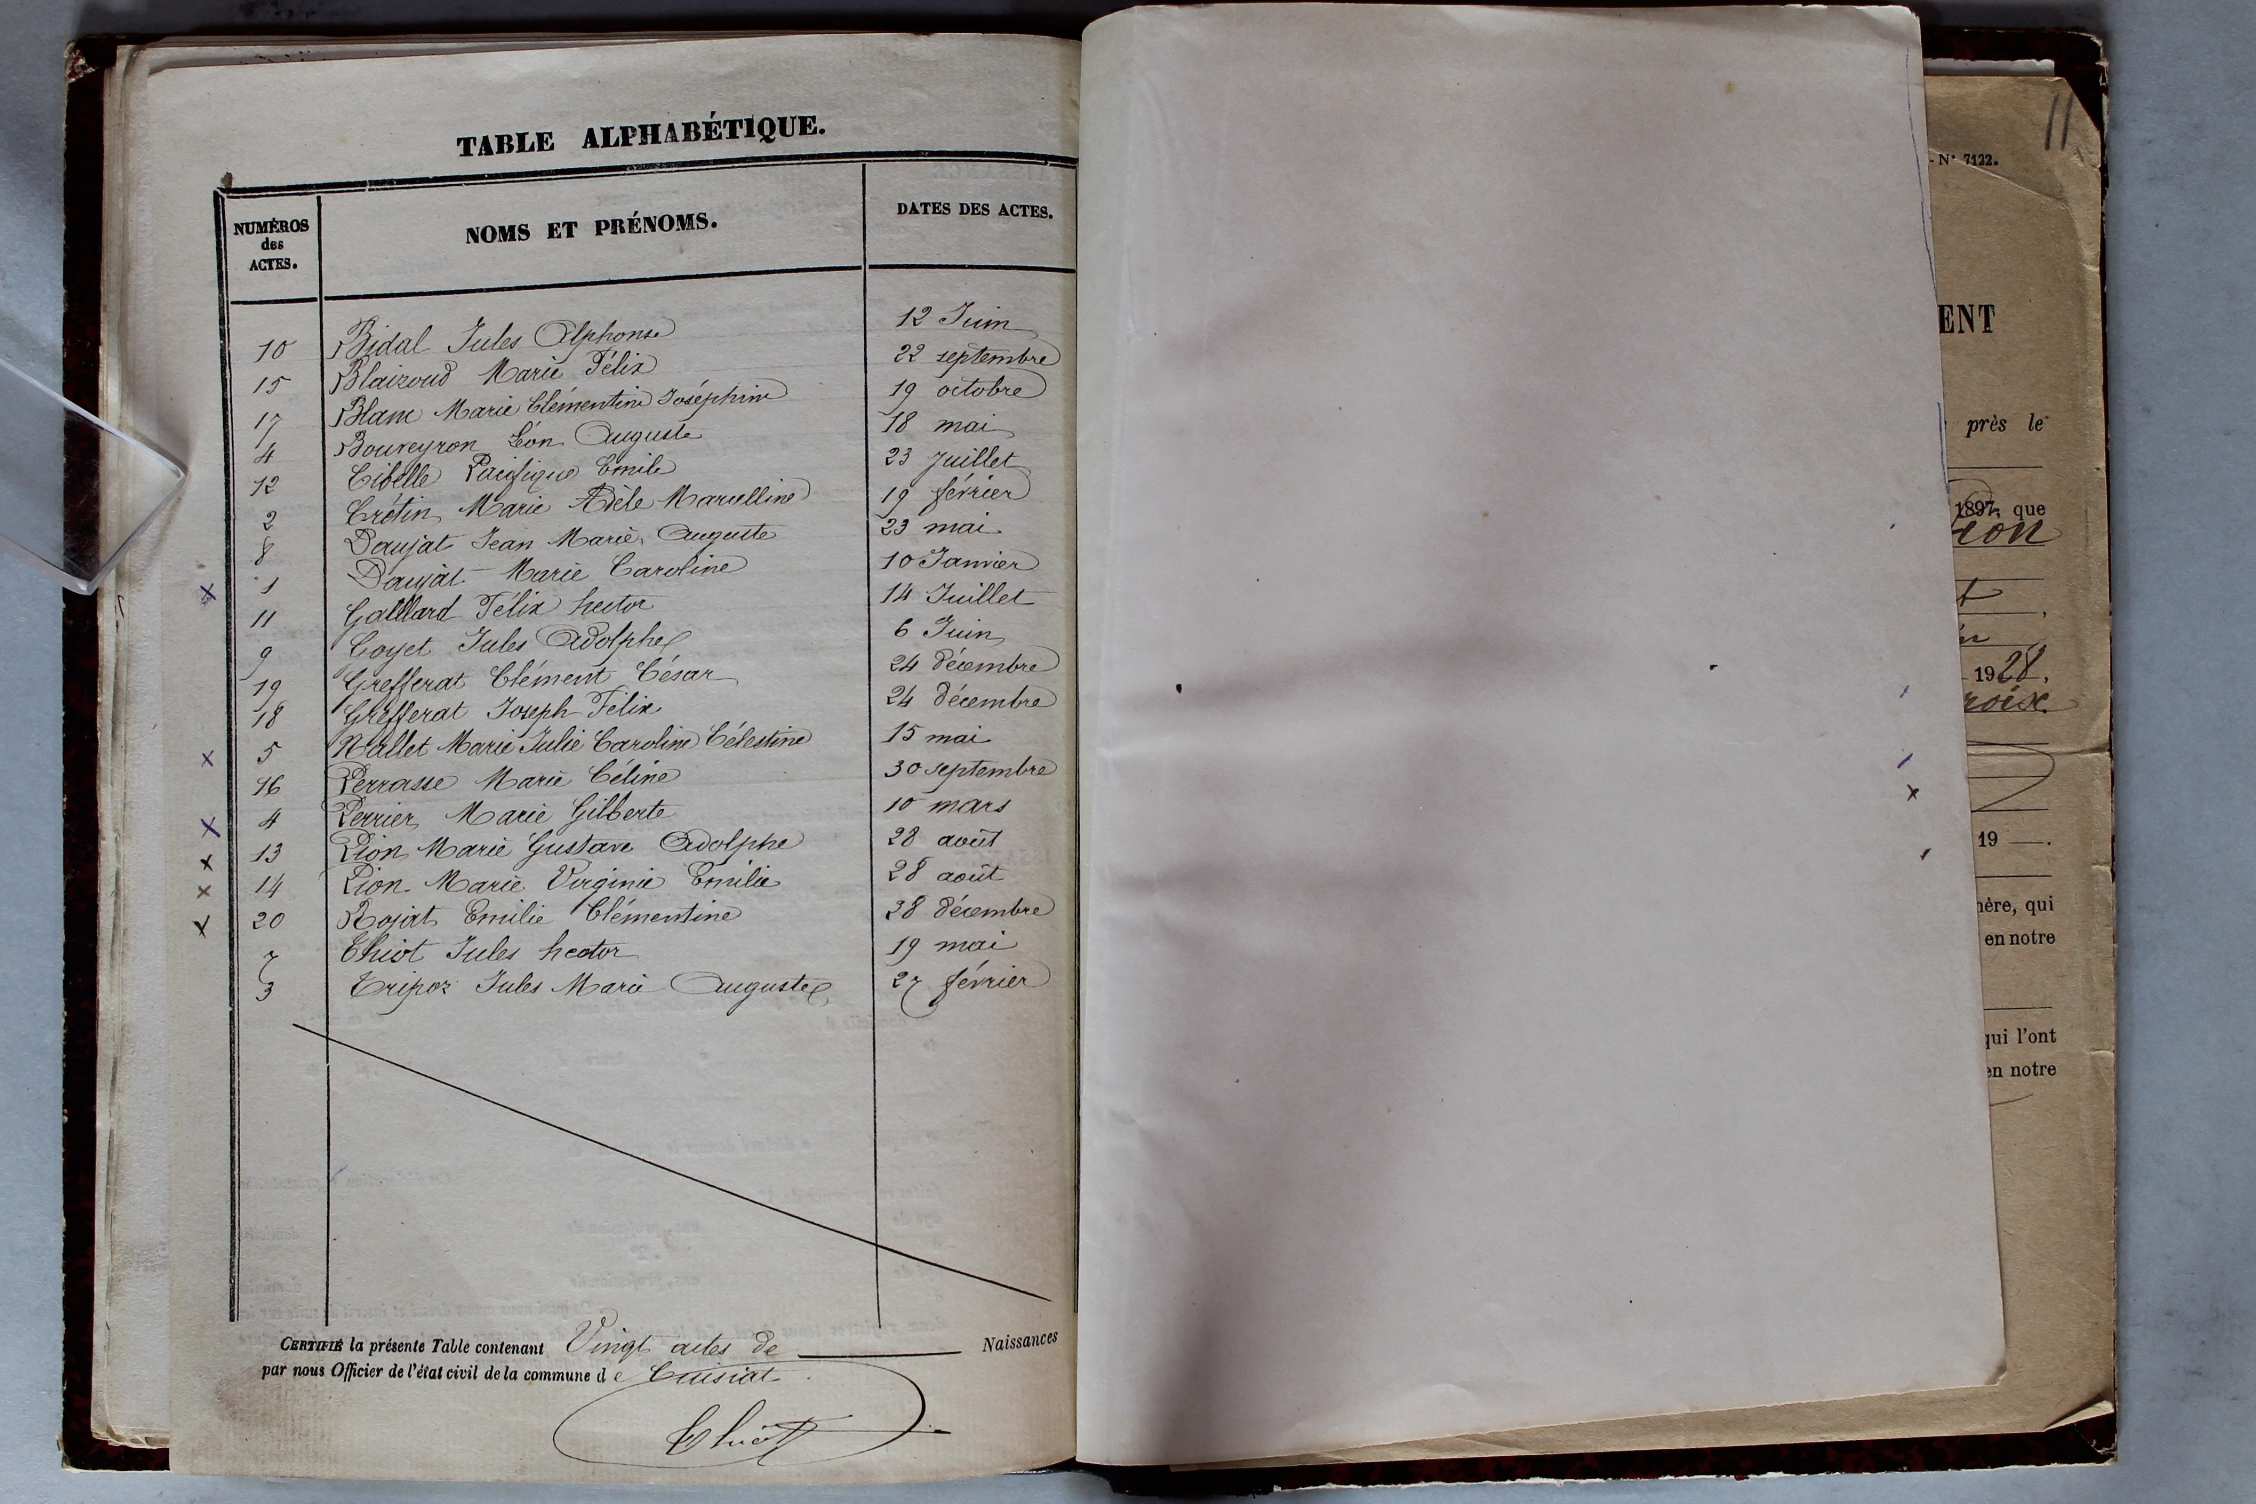 TABLE ALPHABÉTIQUE.
NUMÉROS des ACTES. NOMS ET PRÉNOMS. DATES DES ACTES.
10 Bidal Jules Alphonse 12 Juin
15 Blairoud Marie Félix 22 septembre
17 Blanc Marie Clémentine Joséphine 19 octobre
4 Bouveyron Léon Auguste 18 mai
12 Cibelle Pacifique Emile 23 Juillet
2 Crétin Marie Adèle Marcelline 19 février
8 Daujat Jean Marie Auguste 23 mai
1 Daujat Marie Caroline 10 Janvier
11 Gaillard Félix hector 14 Juillet
9 Goyet Jules Adolphe 6 Juin
19 Grefferat Clément César 24 décembre
18 Grefferat Joseph Félix 24 décembre
5 Nallet Marie Julie Caroline Célestine 15 mai
16 Perrasse Marie Céline 30 septembre
4 Perrier Marie Gilberte 10 mars
13 Pion Marie Gustave Adolphe 28 août
14 Pion Marie Virginie Emilie 28 août
20 Rojat Emilie Clémentine 28 décembre
7 Thiot Jules hector 19 mai
3 Tripoz Jules Marie Auguste 27 février
CERTIFIÉ la présente Table contenant Vingt actes de Naissances
par nous Officier de l'état civil de la commune de Cuisiat
Thiot
11
- N° 7122.
ENT
près le
1897, que
1928.
19 .
mère, qui
en notre
qui l'ont
en notre